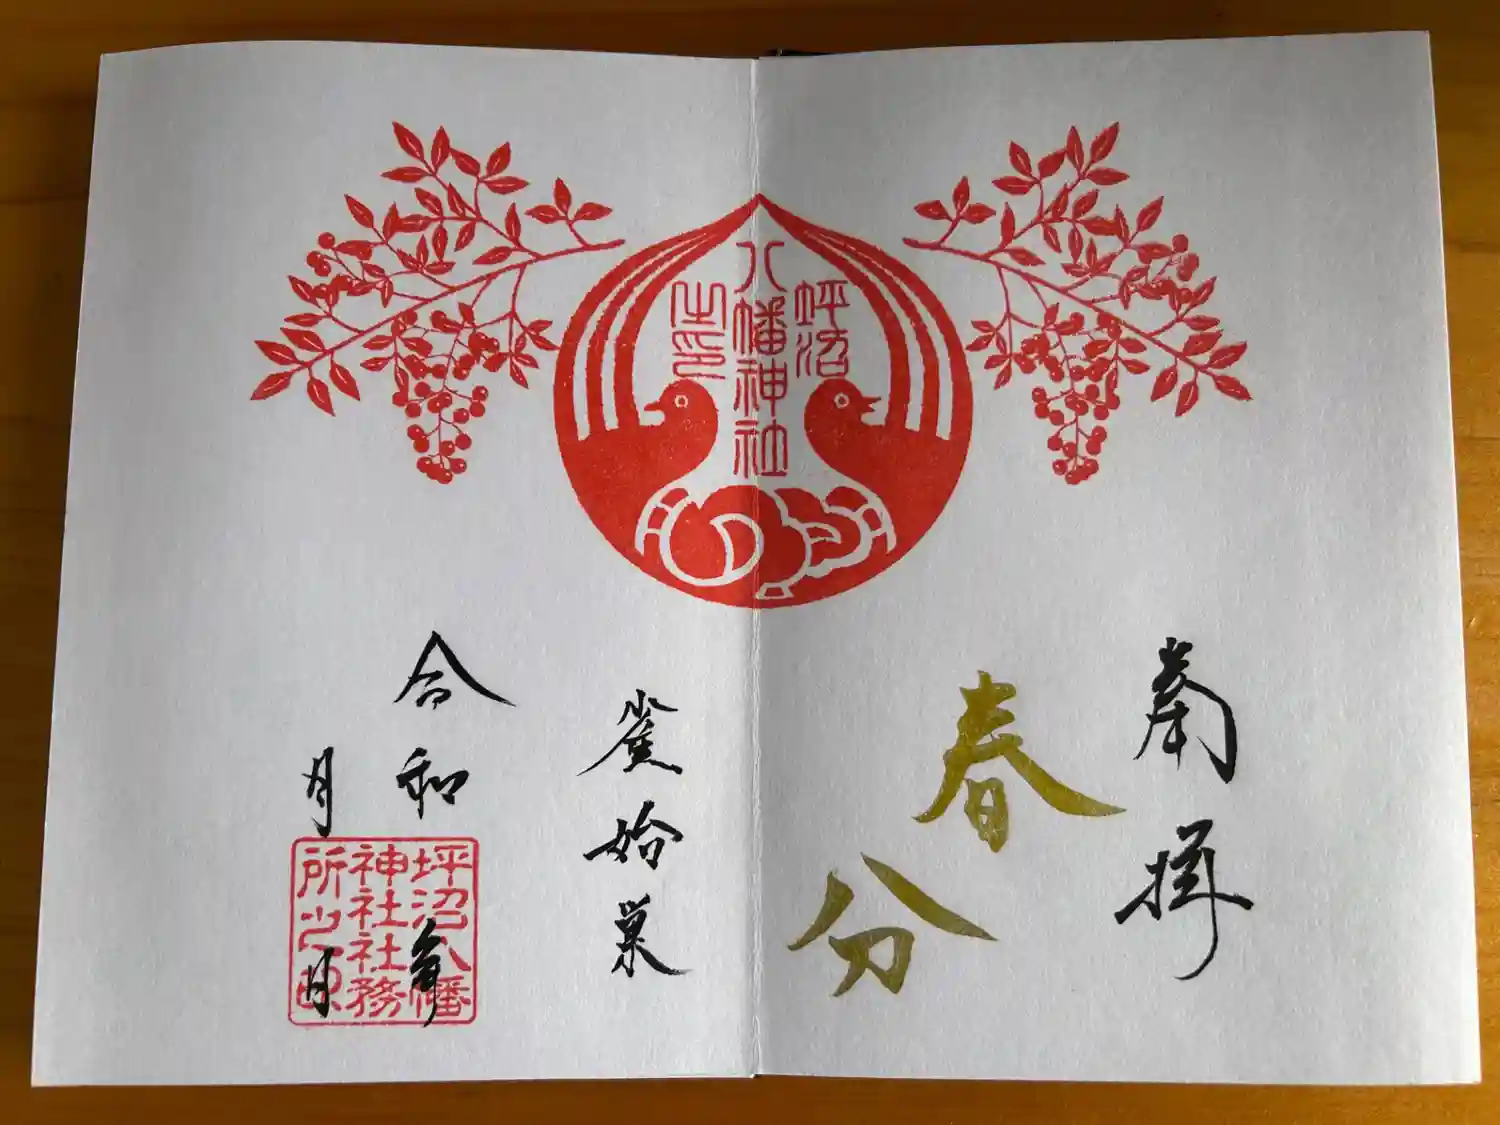 坪沼
八幡神社
之印
奉拝
春分
雀始巣
令和 年
月 日
坪沼八幡
神社社務
所之印